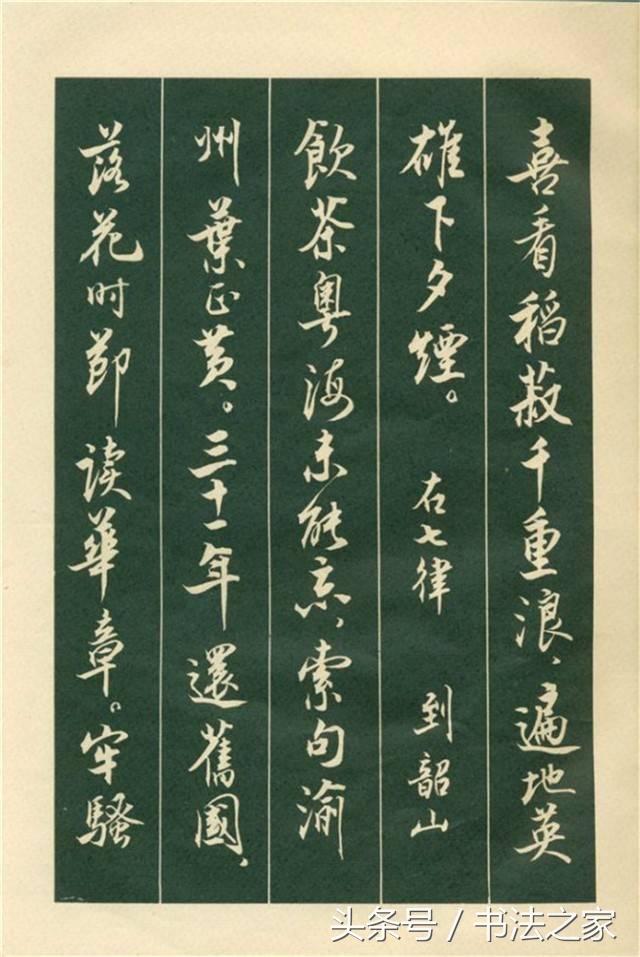 喜看稻菽千重浪、遍地英
雄下夕煙。 右七律 到韶山
飲茶粵海未能忘、索句渝
州葉正黄。三十一年還舊國、
落花时節读華章。牢騷
头条号 / 书法之家